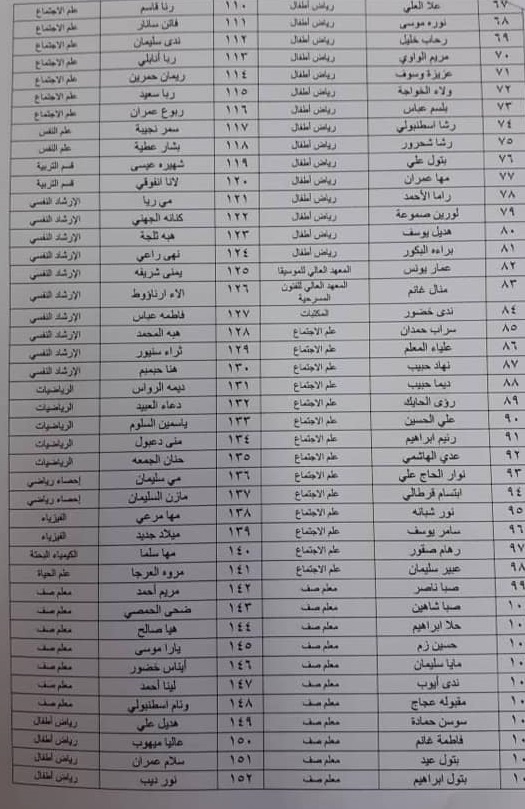 ٦٧ علا العلي رياض أطفال ١١٠ رنا قاسم علم الاجتماع
٦٨ نوره موسى رياض أطفال ١١١ فاتن سانار علم الاجتماع
٦٩ رحاب خليل رياض أطفال ١١٢ ندى سليمان علم الاجتماع
٧٠ مريم الواوي رياض أطفال ١١٣ ربا أنابلي علم الاجتماع
٧١ عزيزة وسوف رياض أطفال ١١٤ ريمان حمرين علم الاجتماع
٧٢ ولاء الخواجة رياض أطفال ١١٥ ربا سعيد علم الاجتماع
٧٣ بلسم عباس رياض أطفال ١١٦ ربوع عمران علم الاجتماع
٧٤ رشا اسطنبولي رياض أطفال ١١٧ سمر نجيبة علم النفس
٧٥ رشا شحرور رياض أطفال ١١٨ بشار عطية علم النفس
٧٦ بتول علي رياض أطفال ١١٩ شهيره عيسى قسم التربية
٧٧ مها عمران رياض أطفال ١٢٠ لانا انفوقي قسم التربية
٧٨ راما الأحمد رياض أطفال ١٢١ مي ريا الإرشاد النفسي
٧٩ لورين صموعة رياض أطفال ١٢٢ كنانه الجهني الإرشاد النفسي
٨٠ هديل يوسف رياض أطفال ١٢٣ هبه ثلجة الإرشاد النفسي
٨١ براءه البكور رياض أطفال ١٢٤ نهى راعي الإرشاد النفسي
٨٢ عمار يونس المعهد العالي للموسيقا ١٢٥ يمنى شريفه الإرشاد النفسي
٨٣ منال غانم المعهد العالي للفنون المسرحية ١٢٦ الاء ارناؤوط الإرشاد النفسي
٨٤ ندى خضور المكتبات ١٢٧ فاطمه عباس الإرشاد النفسي
٨٥ سراب حمدان علم الاجتماع ١٢٨ هبه المحمد الإرشاد النفسي
٨٦ علياء المعلم علم الاجتماع ١٢٩ ثراء سنيور الإرشاد النفسي
٨٧ نهاد حبيب علم الاجتماع ١٣٠ هنا حبميم الإرشاد النفسي
٨٨ ديما حبيب علم الاجتماع ١٣١ ديمه الرواس الرياضيات
٨٩ رؤى الحايك علم الاجتماع ١٣٢ دعاء العبيد الرياضيات
٩٠ علي الحسين علم الاجتماع ١٣٣ ياسمين السلوم الرياضيات
٩١ رنيم ابراهيم علم الاجتماع ١٣٤ منى دعبول الرياضيات
٩٢ عدي الهاشمي علم الاجتماع ١٣٥ حنان الجمعه الرياضيات
٩٣ نوار الحاج علي علم الاجتماع ١٣٦ مي سليمان إحصاء رياضي
٩٤ ابتسام قرطالي علم الاجتماع ١٣٧ مازن السليمان إحصاء رياضي
٩٥ نور شبانه علم الاجتماع ١٣٨ مها مرعي الفيزياء
٩٦ سامر يوسف علم الاجتماع ١٣٩ ميلاد جديد الفيزياء
٩٧ رهام صقور علم الاجتماع ١٤٠ مها سلما الكيمياء البحتة
٩٨ عبير سليمان علم الاجتماع ١٤١ مروه العرجا علم الحياة
٩٩ صبا ناصر معلم صف ١٤٢ مريم أحمد معلم صف
١٠ صبا شاهين معلم صف ١٤٣ ضحى الحمصي معلم صف
١٠ حلا ابراهيم معلم صف ١٤٤ هيا صالح معلم صف
١٠ حسين زم معلم صف ١٤٥ يارا موسى معلم صف
١٠ مايا سليمان معلم صف ١٤٦ أيناس خضور معلم صف
١٠ ندى أيوب معلم صف ١٤٧ لينا أحمد معلم صف
١٠ مقبوله عجاج معلم صف ١٤٨ ونام اسطنبولي معلم صف
١٠ سوسن حمادة معلم صف ١٤٩ هديل علي رياض أطفال
١٠ فاطمة غانم معلم صف ١٥٠ عاليا ميهوب رياض أطفال
١٠ بتول عيد معلم صف ١٥١ سلام عمران رياض أطفال
١٠ بتول ابراهيم معلم صف ١٥٢ نور ديب رياض أطفال